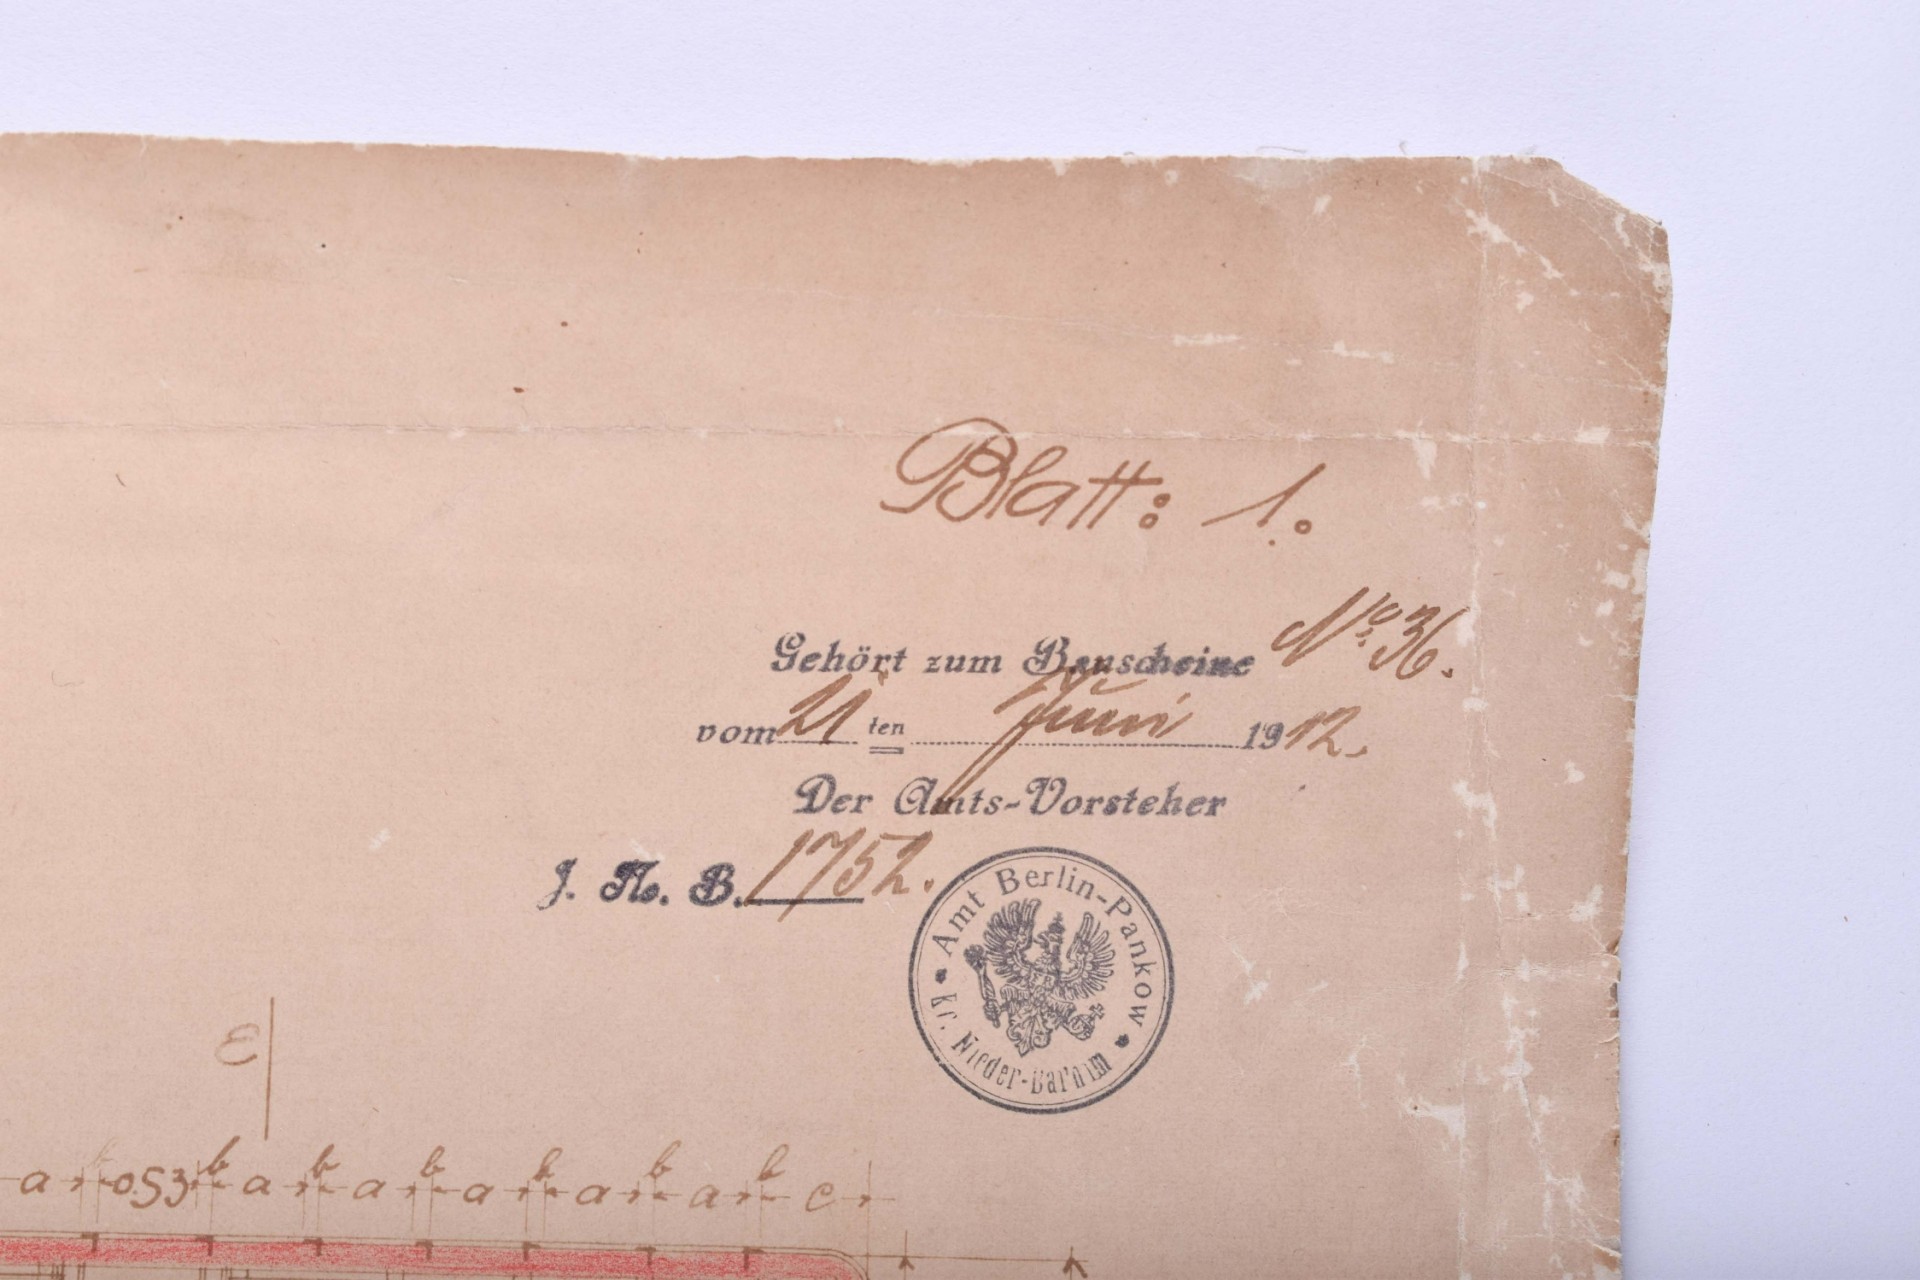 Blatt: 1.
Gehört zum Bauscheine No. 36.
vom 21 ten Juni 1912.
Der Amts-Vorsteher
J. No. B. 1752.
Amt Berlin-Pankow
Kr. Nieder-Barnim
ε
a 0.53 b a b a b a b a b a b c